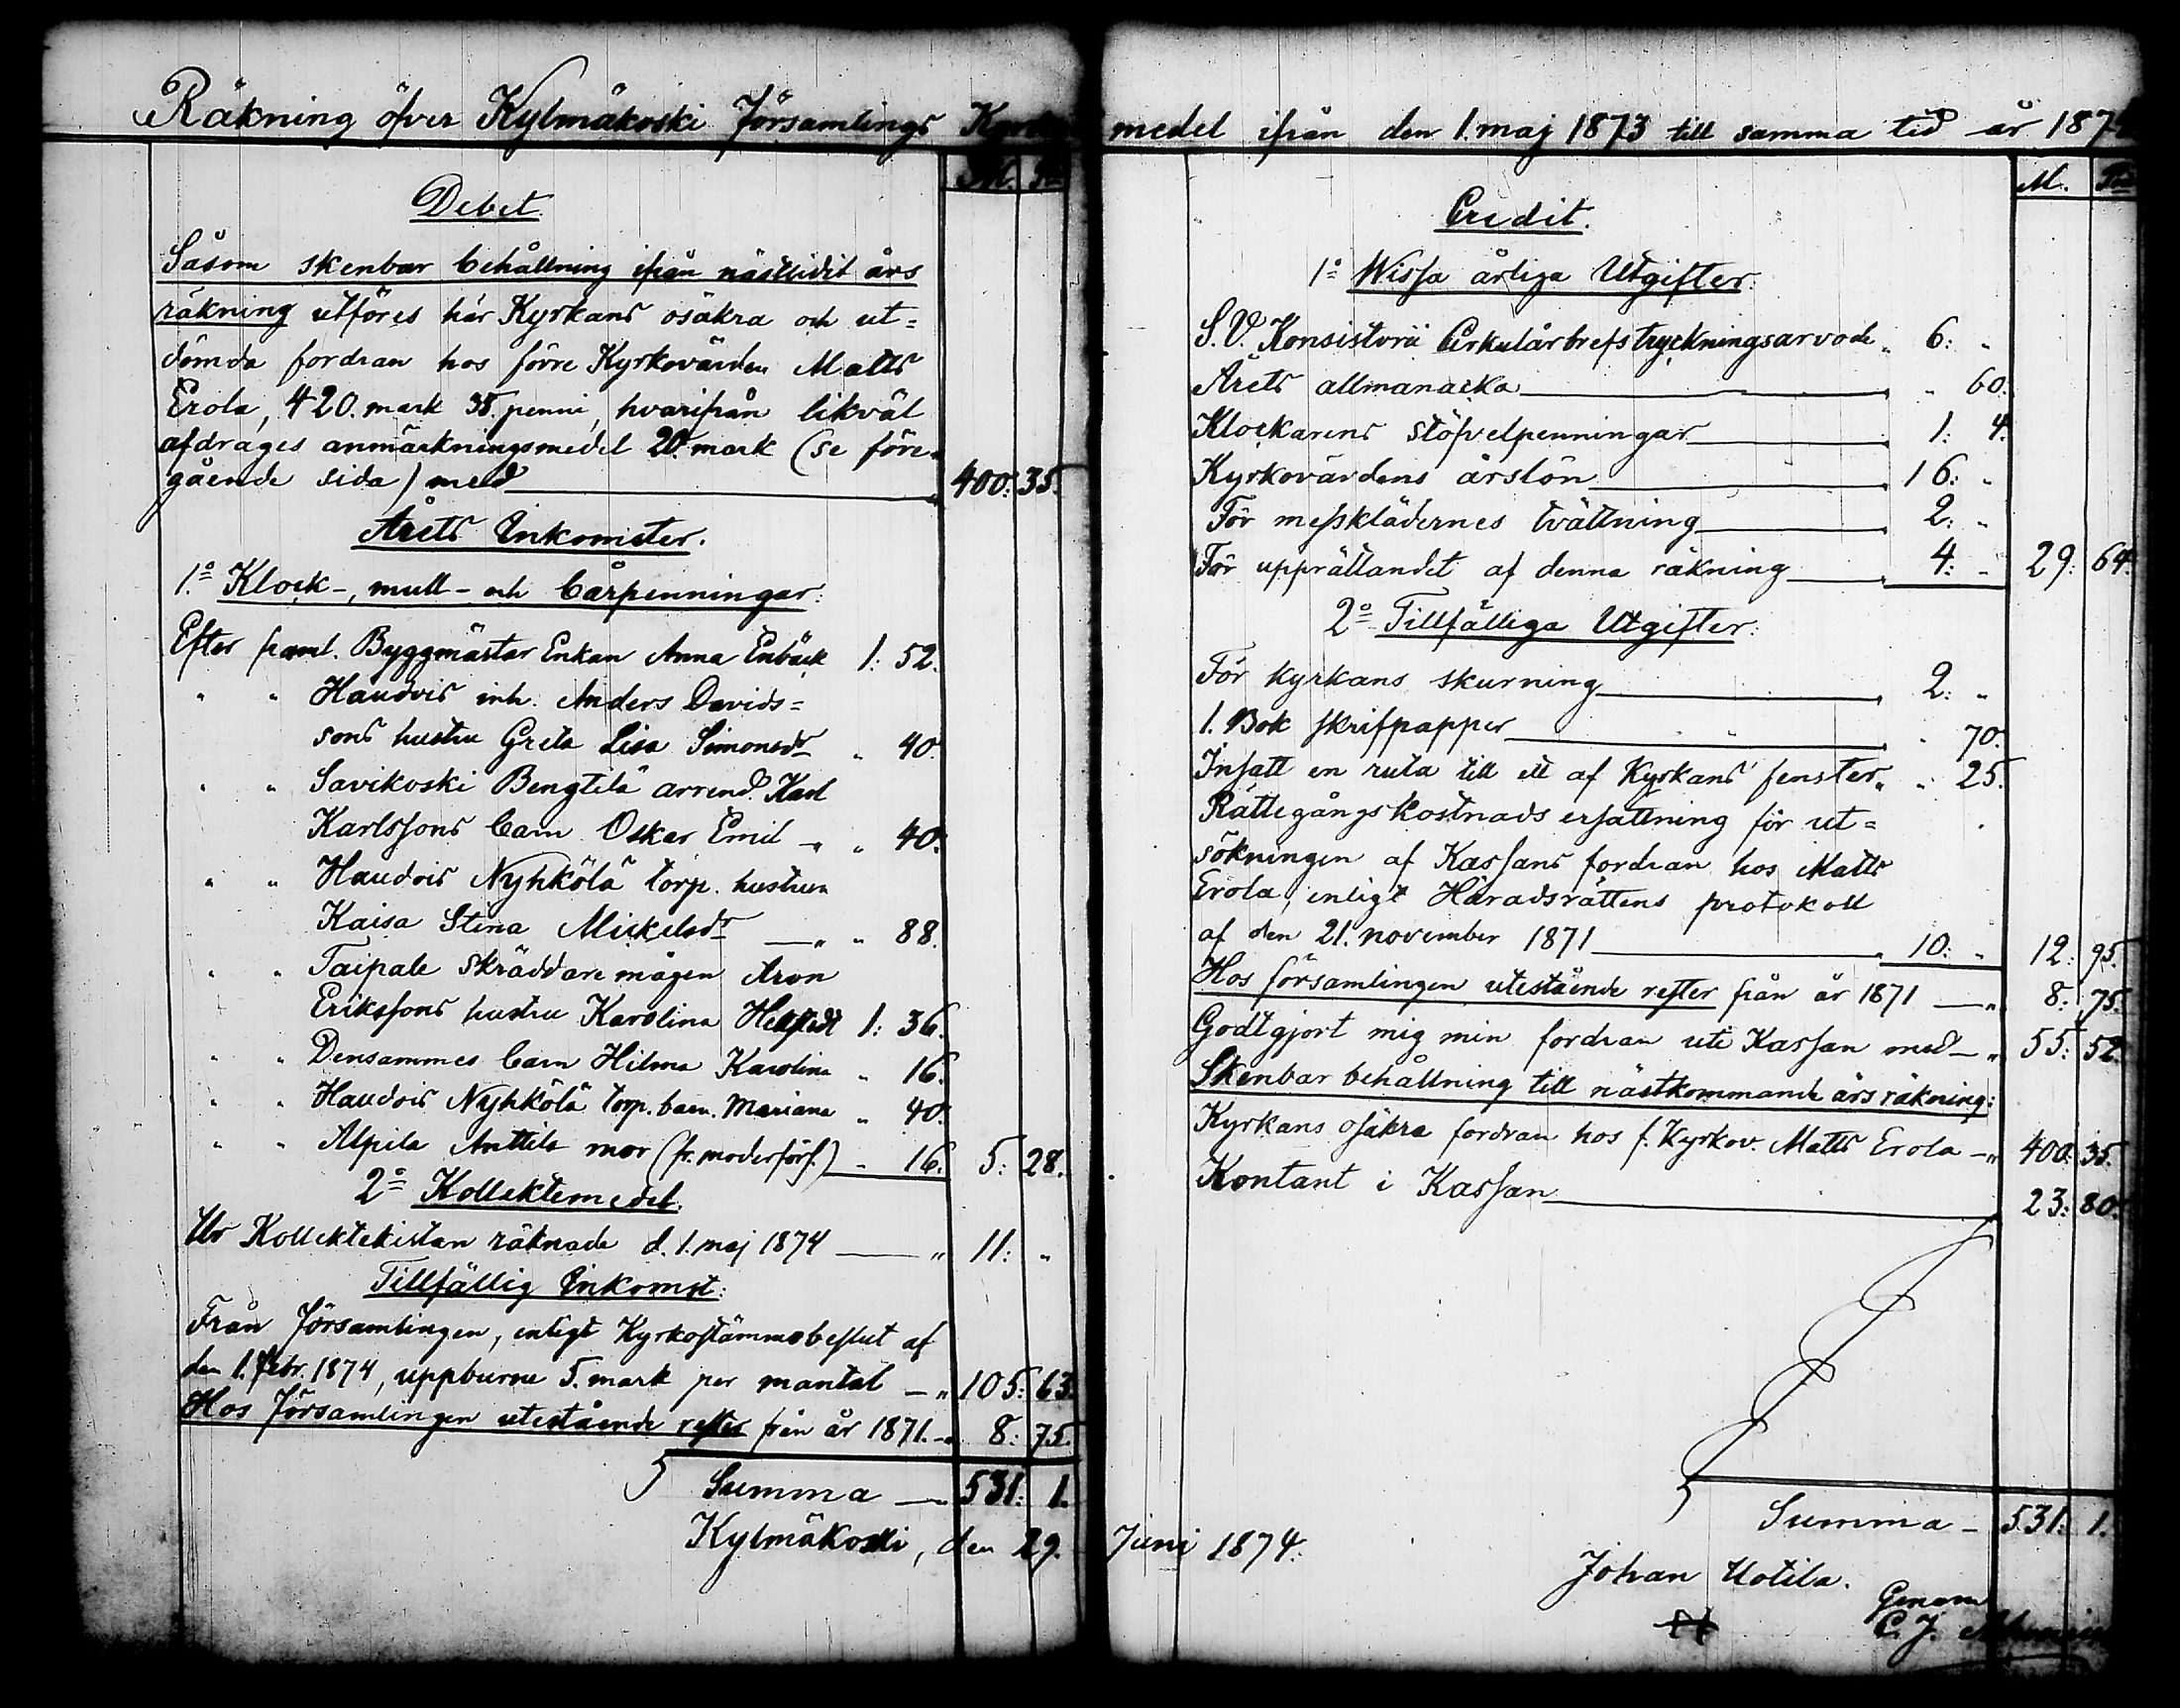 Räkning öfver Kylmäkoski Församlings medel ifrån den 1. maj 1873 till samma tid år 187
M. P:ni
Debet.
Såsom skenbar behållning ifrån nästlidit års
räkning utföres här Kyrkans osäkra och ut=
dömda fordran hos förre Kyrkovärden Matts
Erola, 420. mark 35. penni, hvarifrån likväl
afdrages anmärkningsmedel 20. mark (se före-
gående sida) med 400: 35.
Årets Inkomster.
1:o Klock-, mull- och bårpenningar:
Efter framl. Byggmästar Enkan Anna Enbäck 1: 52.
" " Haudois inh. Anders Davids=
sons hustru Greta Lisa Simonsdr " 40.
" " Savikoski Bengtilä arrend. Karl
Karlssons barn Oskar Emil " " 40.
" " Haudois Nyhkölä torp. hustrun
Kaisa Stina Mickelsdr " " 88.
" " Taipale skräddare mågen Aron
Erikssons hustru Karolina 1: 36.
" " Densammes barn Hilma Karolina " 16.
" " Haudois Nyhkölä torp. barn. Mariana " 40.
" " Alpila Anttila mor (fr. moderförs.) " 16. 5: 28.
2:o Kollektemedel.
Ur Kollektekistan räknade d. 1. maj 1874 " 11: "
Tillfällig Inkomst:
Från Församlingen, enligt Kyrkostämmobeslut af
den 1. Febr. 1874, uppburne 5. mark per mantal " 105: 63.
Hos Församlingen utestående rester från år 1871. " 8: 75.
Summa 531: 1.
Kylmäkoski, den 29. Juni 1874.
M. P:ni
Credit.
1:o Wissa årliga Utgifter:
S. V. Konsistorii Cirkulärbrefs tryckningsarvode " 6: "
Årets allmanacka " " 60.
Klockarens stöfvelpenningar 1: 4.
Kyrkovärdens årslön 16: "
För messklädernes tvättning 2: "
För upprättandet af denna räkning 4: " 29: 64.
2:o Tillfälliga Utgifter:
För kyrkans skurning 2: "
1. Bok skrifpapper " 70.
Insatt en ruta till ett af Kyrkans fenster " " 25.
Rättegångskostnads ersättning för ut=
sökningen af Kassans fordran hos Matts
Erola, enligt Häradsrättens protokoll
af den 21. november 1871 10: " 12: 95.
Hos församlingen utestående rester från år 1871 " 8: 75.
Godtgjort mig min fordran uti Kassan med " 55: 52.
Skenbar behållning till nästkommande års räkning:
Kyrkans osäkra fordran hos f. Kyrkov. Matts Erola " 400: 35.
Kontant i Kassan 23: 80.
Summa 531: 1.
Johan Uotila.
Genom
C. J.